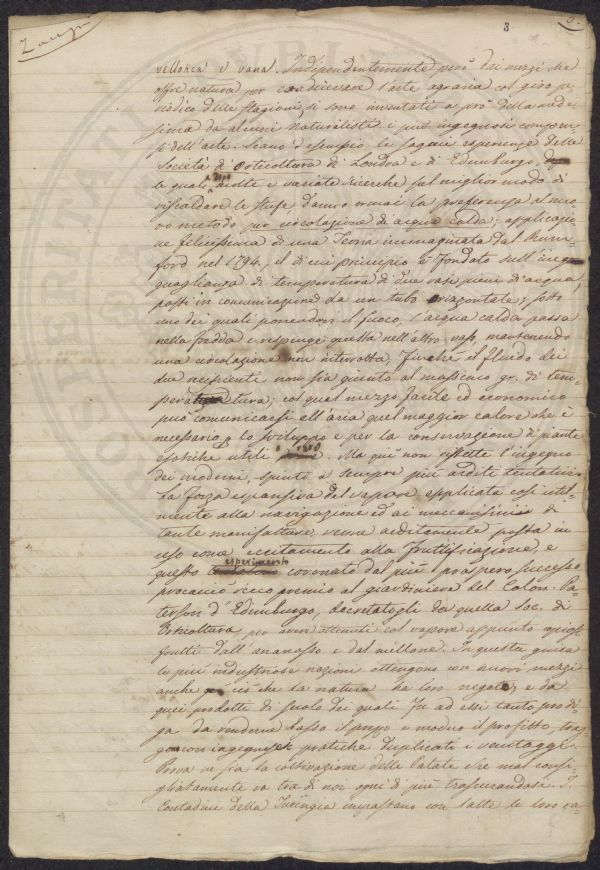 3
vellosca e vana. Indipendentemente però dai mezzi che
offre natura per coadiuvare l'arte agraria col giro pe-
riodico delle stagioni, si sono inventati a prò della mede-
sima da alcuni naturalisti i più ingegnosi compen-
si dell'arte. Siano d'esempio le sagaci esperienze delle
Società di Orticoltura di Londra e di Edimburgo,
le quali dopo molte e variate ricerche sul miglior modo di
riscaldare le stufe danno ormai la preferenza al nuo-
vo metodo per circolazione di acqua calda: applicazio-
ne felicissima di una Teoria immaginata dal Rum-
ford nel 1794, il di cui principio è fondato sull'ine-
guaglianza di temperatura di due vasi pieni di acqua,
posti in comunicazione da un tubo orizzontale; sotto
uno dei quali ponendosi il fuoco, l'acqua calda passa
nella fredda e respinge questa nell'altro vaso, mantenendo
una circolazione non interrotta, finchè il fluido dei
due recipienti non sia giunto al massimo gr. di tem-
peratura; col qual mezzo facile ed economico
può comunicarsi all'aria quel maggior calore che è
necessario, lo sviluppo e per la conservazione di piante
esotiche utili o rare. Ma quì non ristette l'ingegno
dei moderni, spinto a sempre più arditi tentativi.
La forza espansiva del vapore applicata così util-
mente alla navigazione ed ai meccanismi di
tante manifatture, venne arditamente posta in
uso come eccitamento alla fruttificazione, e
questo esperimento coronato dal più prospero successo
procacciò ricco premio al giardiniere del Colon. Pa-
terson d'Edimburgo, decretatogli da quella Soc. di
Orticoltura, per aver ottenuti col vapore appunto
frutti dall'ananasso e dal mellone. In questa guisa
le più industriose nazioni ottengono con nuovi mezzi
anche ciò che la natura ha loro negato, e da
quei prodotti di suolo dei quali fu ad essi tanto prodi-
ga da renderne basso il prezzo e modico il profitto, trag-
gon con ingegnose pratiche duplicati i vantaggi.
Prova ne sia la coltivazione delle Patate che mal consi-
gliatamente va tra di noi ogni dì più trascurandosi. I
Contadini della Turingia impastano con latte le loro ca-